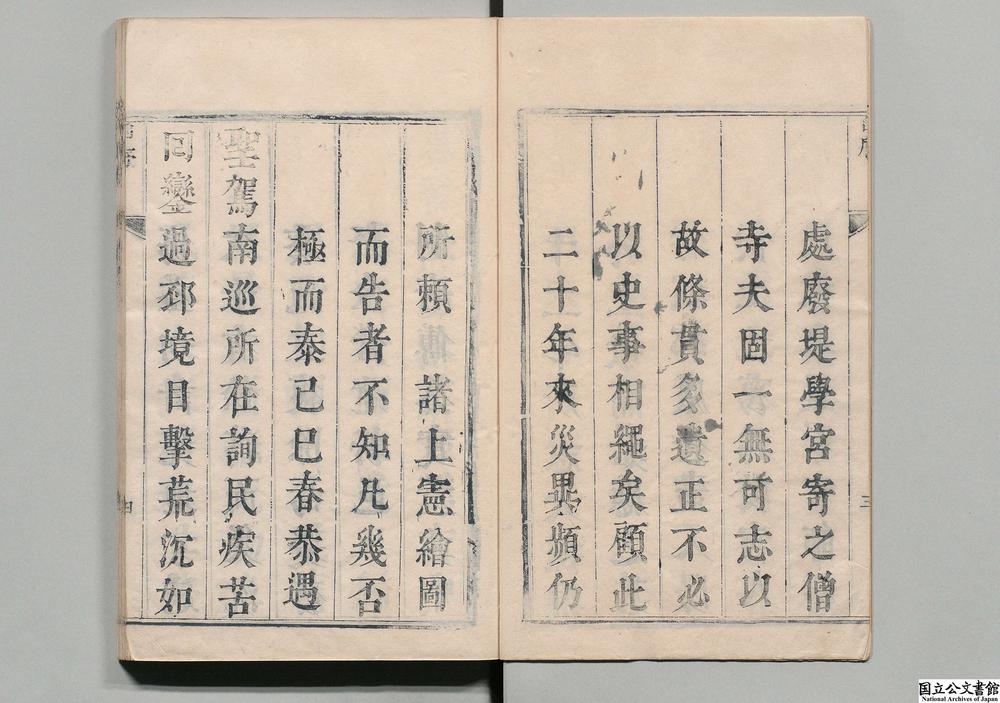 處廢堤學宮寄之僧
寺夫固一無可志以
故條貫多遺正不必
以史事相繩矣顧此
二十年來災異頻仍
三
所賴諸上憲繪圖
而告者不知凡幾否
極而泰己巳春恭遇
聖駕南巡所在詢民疾苦
回鑾過邳境目擊荒沉如
四
国立公文書館
National Archives of Japan